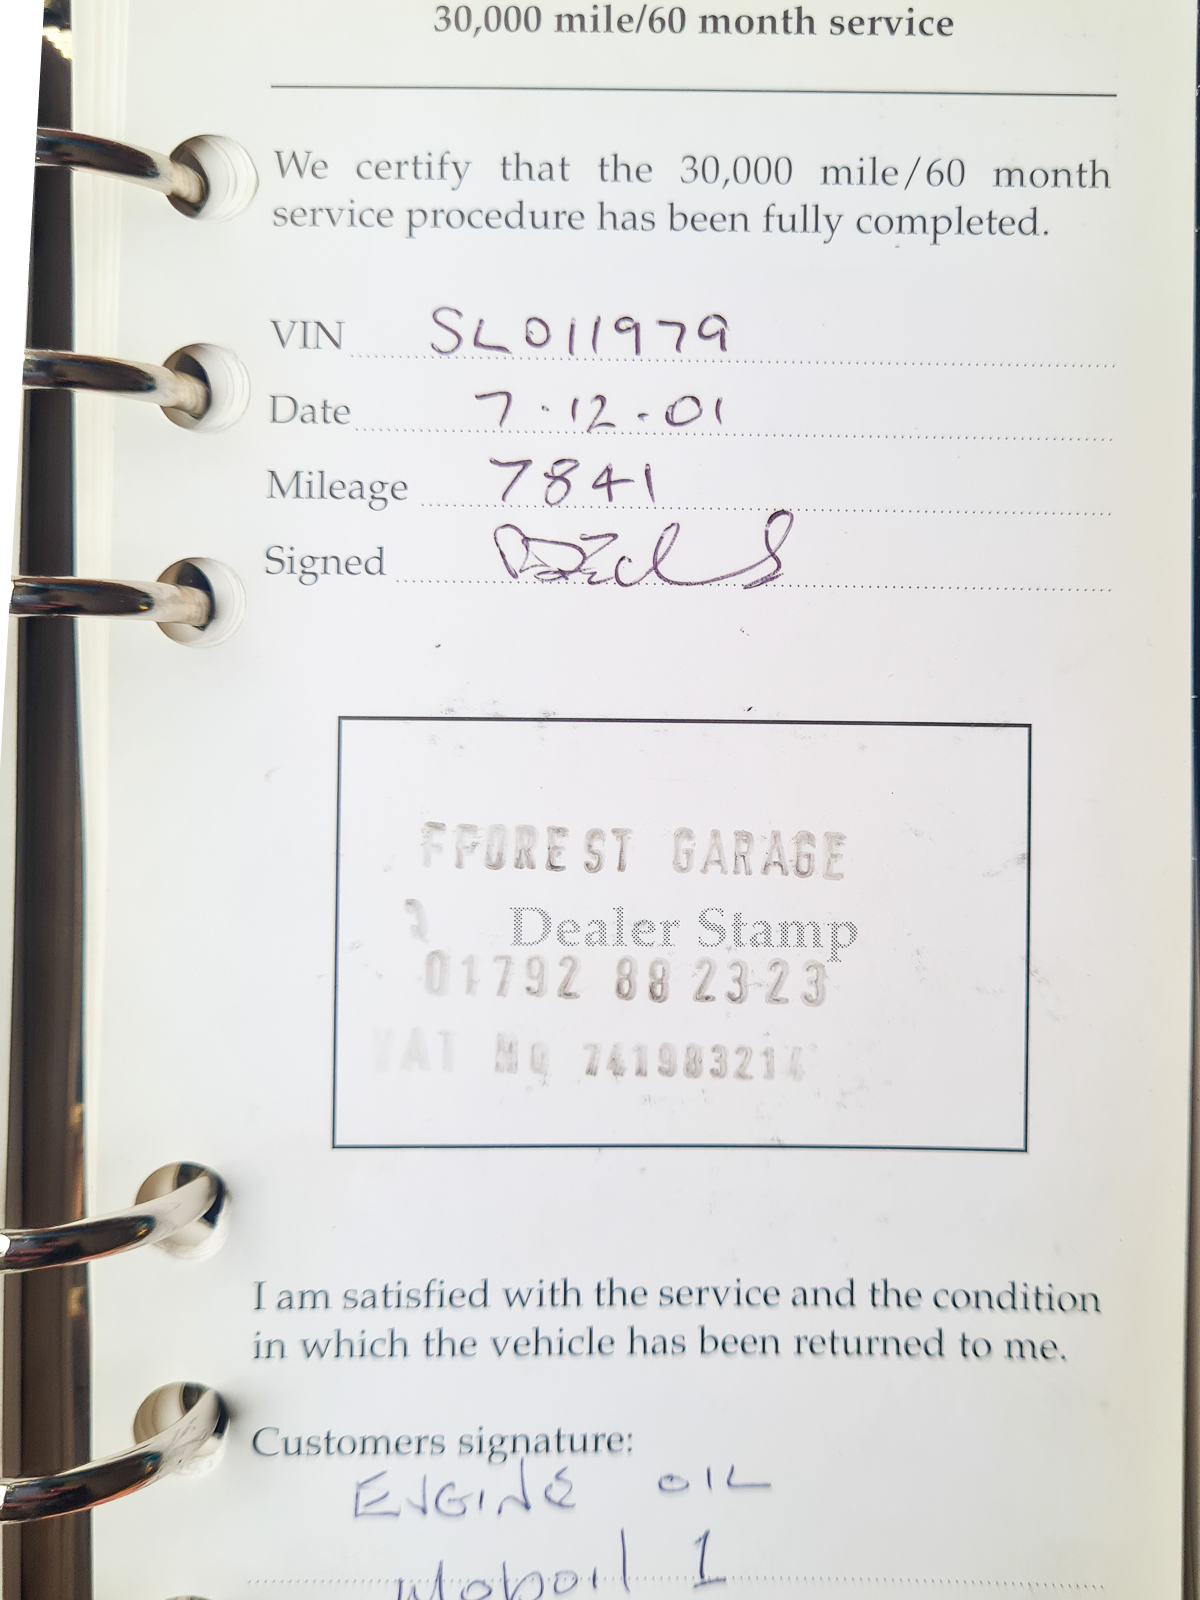 30,000 mile/60 month service
We certify that the 30,000 mile/60 month
service procedure has been fully completed.
VIN SL011979
Date 7.12.01
Mileage 7841
Signed
FFOREST GARAGE
Dealer Stamp
01792 88 23 23
VAT NO 741983214
I am satisfied with the service and the condition
in which the vehicle has been returned to me.
Customers signature:
ENGINE OIL
Moboil 1